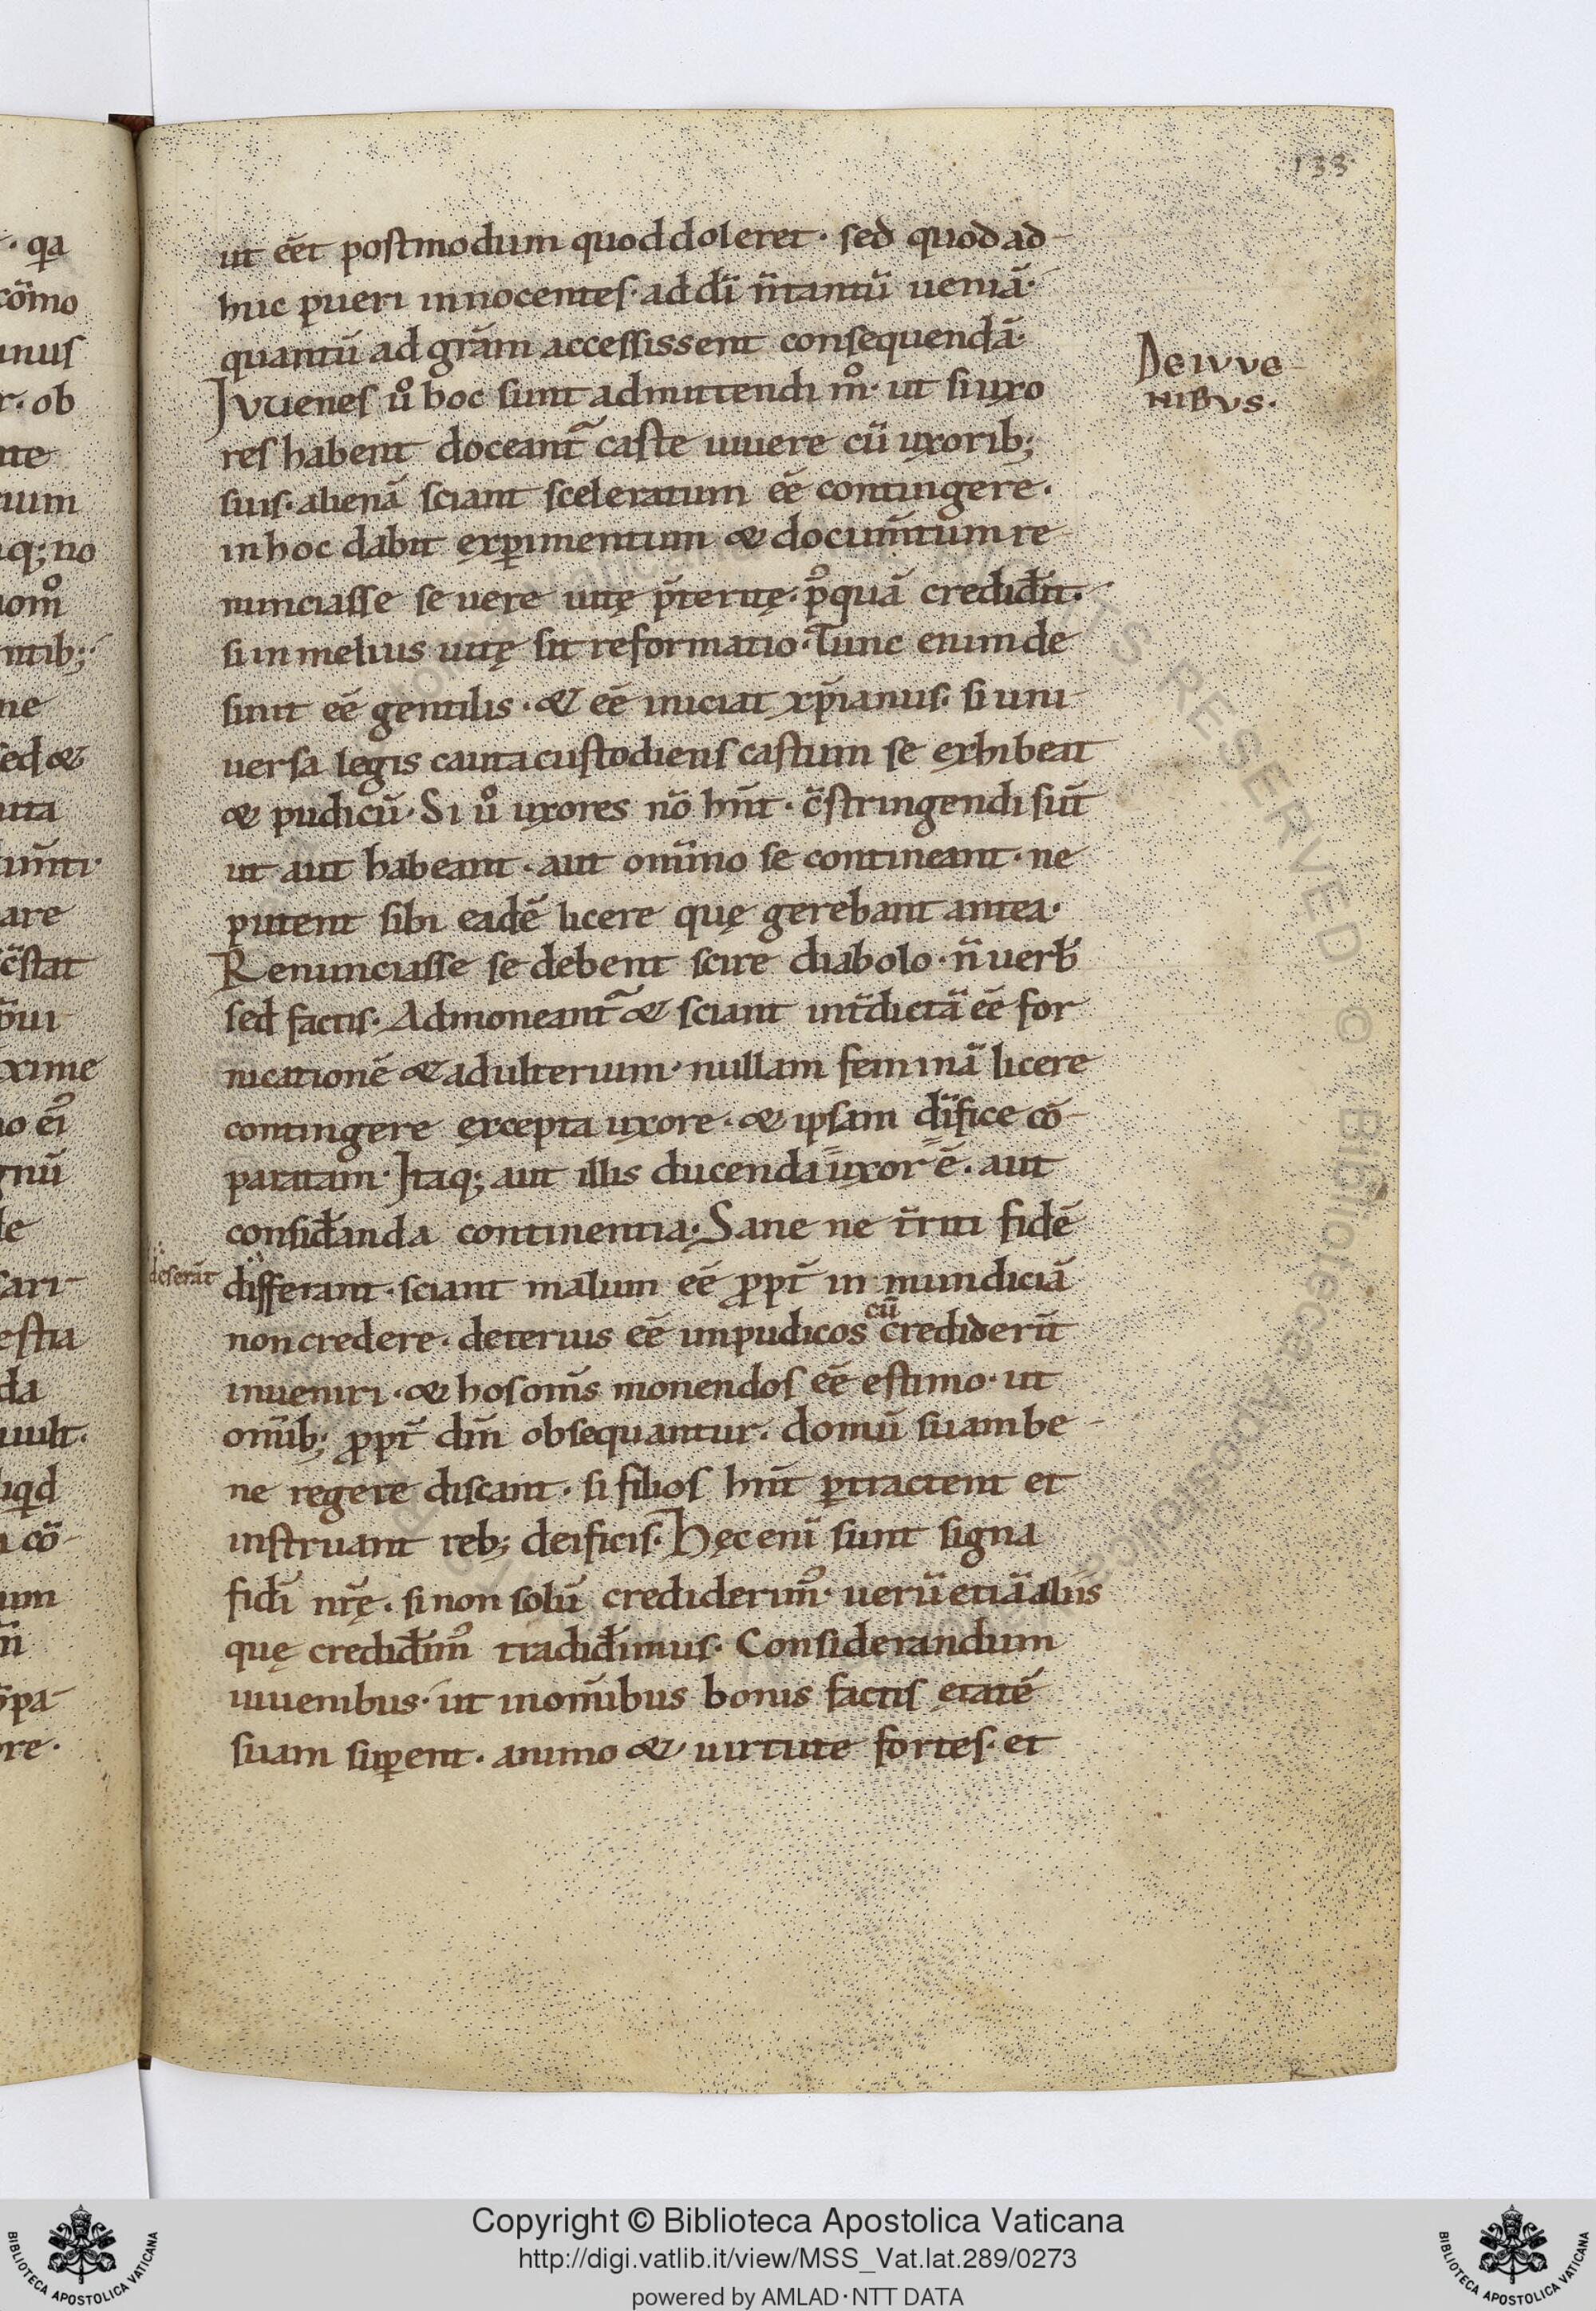 133
ut eēt postmodum quod doleret · sed quod ad-
huc pueri innocentes · ad dī n̄ tantū ueniā ·
quantū ad grām accessissent consequendā ·
Iuuenes ů hoc sunt admittendi m̊ · ut si uxo
res habent doceant᷑ caste uiuere cū uxorib;
suis · alienā sciant sceleratum eē contingere ·
in hoc dabit exꝑimentum & documītum re
nunciasse se uere uitę p̄teritę · pꝰquā credid̄it ·
si in melius uitę sit reformatio · Tunc enim de
sinit eē gentilis · & eē iniciat xp̄ianus · si uni-
uersa legis cauta custodiens castum se exhibeat
& pudicū · Si ů uxores nō hn̄t · c̄stringendi sūt
ut aut habeant · aut omīno se contineant · ne
putent sibi eadē licere quę gerebant antea ·
Renunciasse se debent scire diabolo · n̄ uerb̄
sed factis · Admoneant᷑ & sciant int̄dictā eē for
nicationē & adulterium · nullam feminā licere
contingere excepta uxore · & ipsam dīfice cō-
paratam · Itaq; aut illis ducenda uxor ē · aut
consid̄anda continentia · Sane ne t̄riti fidē
differant · sciant malum eē ꝓpt̄ in mundiciā
deserāt
non credere · deterius eē impudicos cū crediderīt
inueniri · & hos om̄s monendos eē estimo · ut
omīb; ꝓpt̄ dm̄ obsequantur · domū suam be-
ne regere discant · si filios hn̄t ꝑtractent et
instruant reb; deificis · Hęc enī sunt signa
fidī nr̄ę · si non solū crediderimꝰ · uerū etiā aliis
quę credid̄imꝰ tradid̄imus · Considerandum
iuuenibus · ut in om̄ibus bonis factis ętatē
suam suꝑent · animo & uirtute fortes · et
De iuve-
nibvs ·
· qa
cōmo
inus
r · ob
ium
q; no
ntib;
ne
sed &
tta
are
c̄stat
xime
nū
le
sari-
estia
da
uult ·
iqd
cō-
um
pa-
re ·
Copyright © Biblioteca Apostolica Vaticana
http://digi.vatlib.it/view/MSS_Vat.lat.289/0273
powered by AMLAD · NTT DATA
BIBLIOTECA APOSTOLICA VATICANA
BIBLIOTECA APOSTOLICA VATICANA